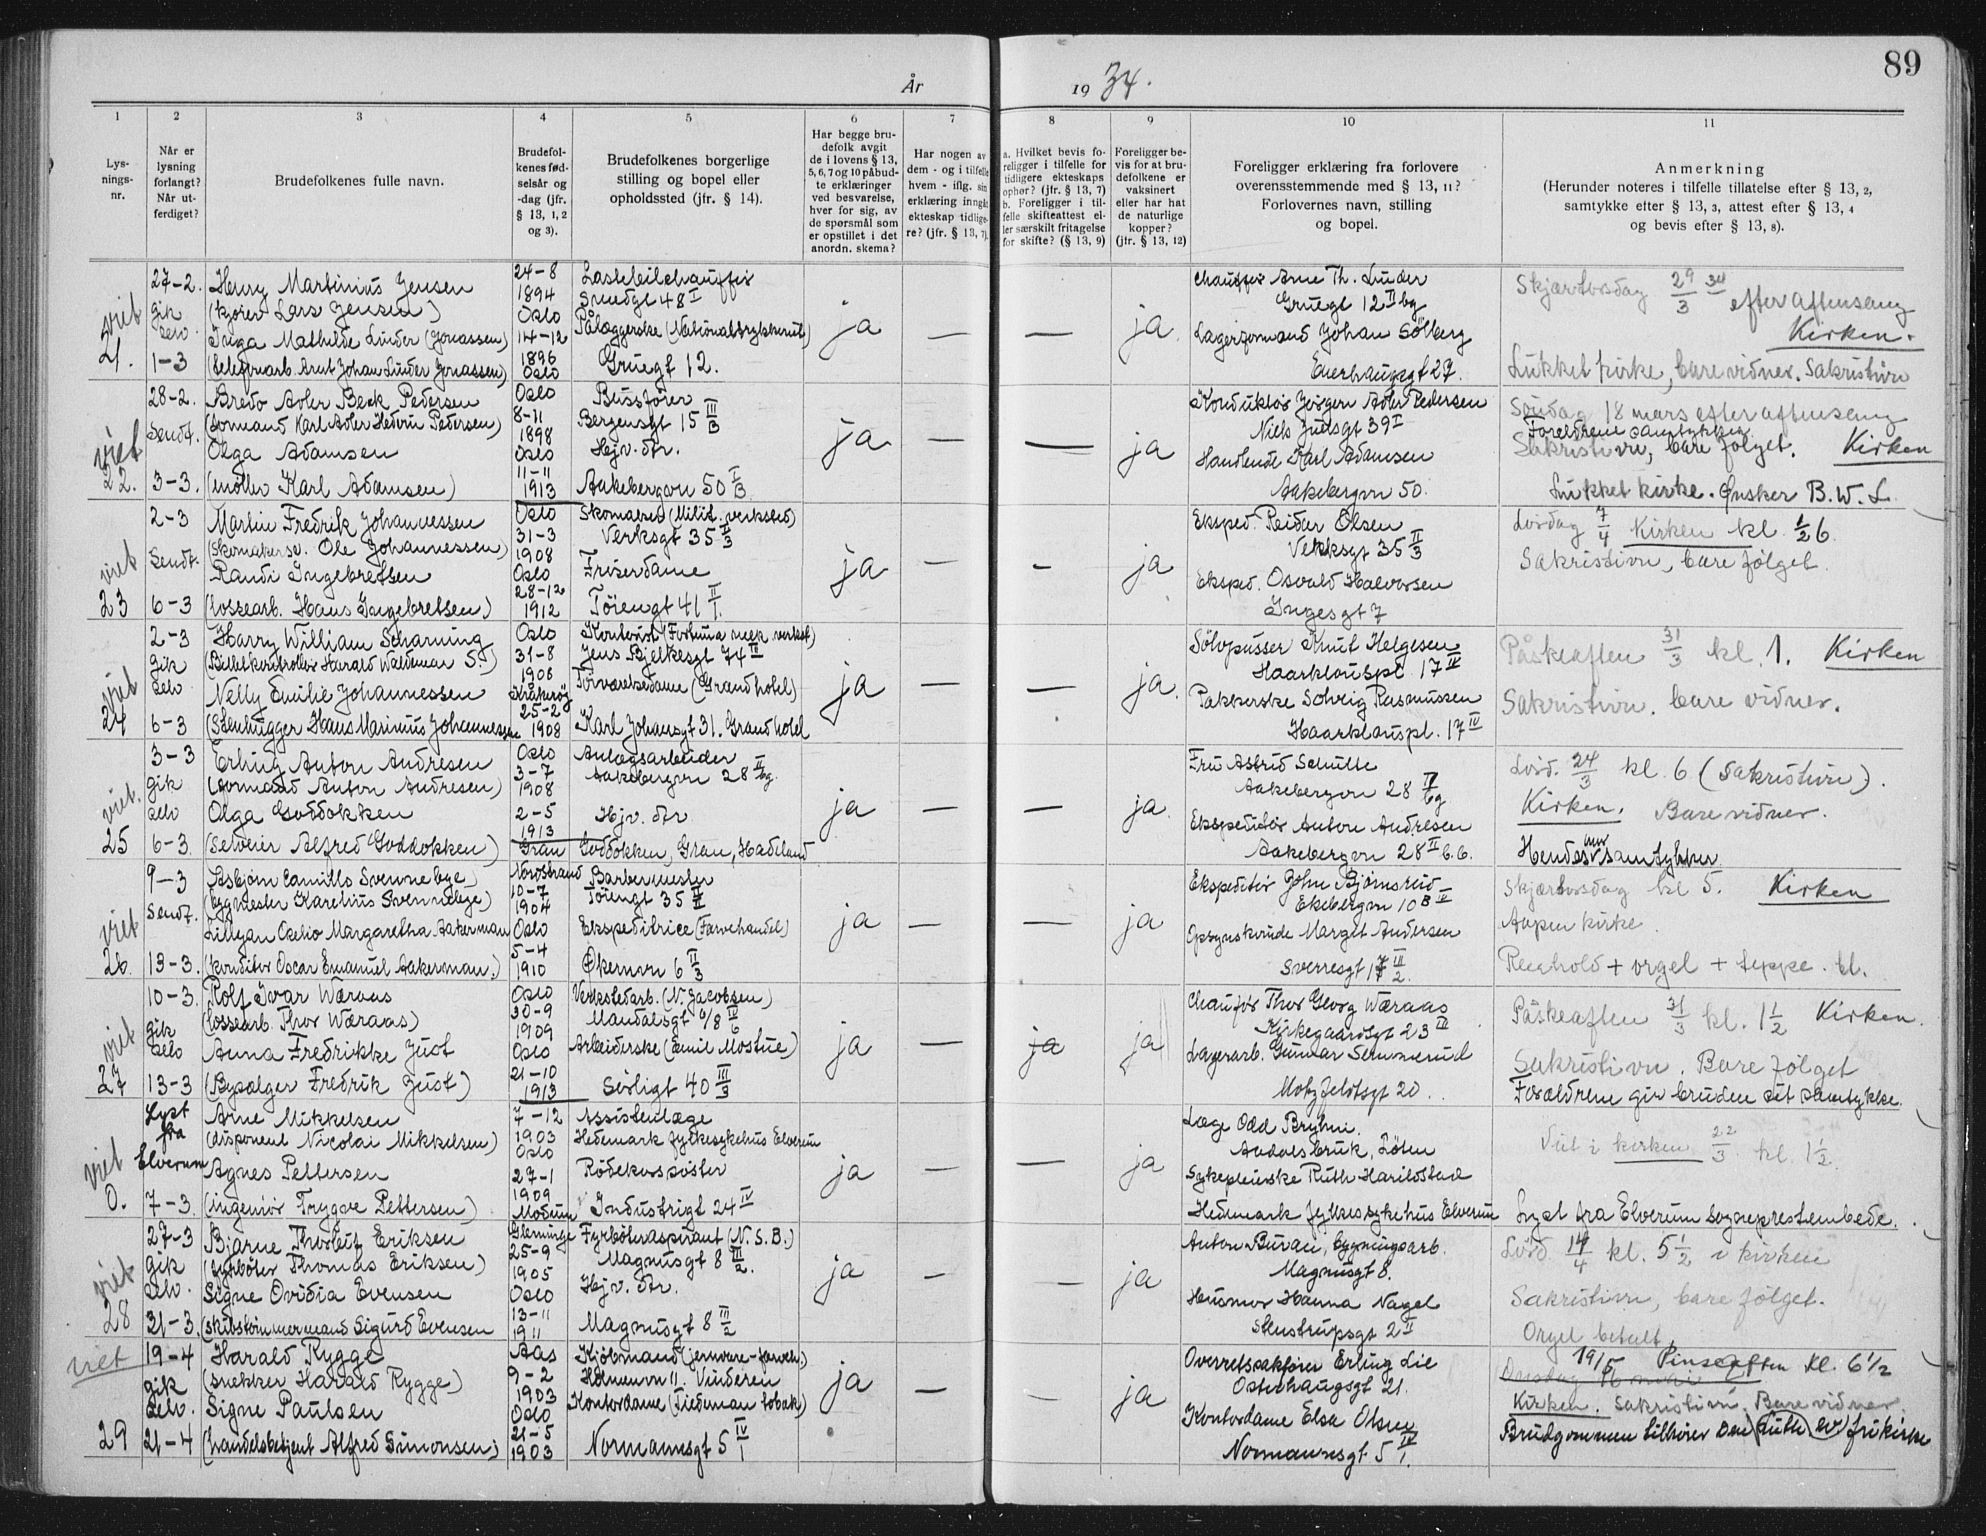 89
År 1934.
1 2 3 4 5 6 7 8 9 10 11
Lys-
nings-
nr.
Når er
lysning
forlangt?
Når ut-
ferdiget?
Brudefolkenes fulle navn.
Brudefol-
kenes fød-
selsår og
-dag (jfr.
§ 13, 1, 2
og 3).
Brudefolkenes borgerlige
stilling og bopel eller
opholdssted (jfr. § 14).
Har begge bru-
defolk avgit
de i lovens § 13,
5, 6, 7 og 10 påbud-
te erklæringer
ved besvarelse,
hver for sig, av
de spørsmål som
er opstillet i det
anordn. skema?
Har nogen av
dem - og i tilfelle
hvem - iflg. sin
erklæring inngått
ekteskap tidlige-
re? (jfr. § 13, 7).
a. Hvilket bevis fo-
religger i tilfelle for
tidligere ekteskaps
ophør? (jfr. § 13, 7)
b. Foreligger i til-
felle skifteattest el-
ler særskilt fritagelse
for skifte? (§ 13, 9)
Foreligger be-
vis for at bru-
defolkene er
vaksinert
eller har hat
de naturlige
kopper?
(jfr. § 13, 12)
Foreligger erklæring fra forlovere
overensstemmende med § 13, 11?
Forlovernes navn, stilling
og bopel.
Anmerkning
(Herunder noteres i tilfelle tillatelse efter § 13, 2,
samtykke efter § 13, 3, attest efter § 13, 4
og bevis efter § 13, 8).
viet
21.
27-2.
gik
selv
1-3
Henry Martinius Jensen
(kjører Lars Jensen)
Inga Mathilde Linder (Jonassen)
(telefonarb. Arnt Johan Linder Jonassen)
24-8
1894
Oslo
14-12
1896
Oslo
Lastebilchauffør
Smedgt 48 I
Pålæggerske (Nationaltrykkeriet)
Gruegt 12.
ja — — ja.
Chauffør Arne Th. Linder
Gruegt 12 II bg
Lagerformand Johan Sölberg
Enerhaugsgt 27.
Skjærtorsdag 29/3 34
efter aftensang
Kirken.
Lukket kirke, bare vidner. Sakristivn
viet
22.
28-2.
Sendt.
3-3.
Bredo Adler Beck Pedersen
(formand Karl Adler Hedvin Pedersen)
Olga Adamsen
(møller Karl Adamsen)
Oslo
8-11
1898
Oslo
11-11
1913
Bussfører
Bergensgt 15 III B
Hjv. dtr.
Aakebergvn 50 I B.
ja — — ja
Konduktør Jørgen Adler Pedersen
Niels Juelsgt 39 I
Handlende Karl Adamsen
Aakebergvn 50.
Søndag 18 mars efter aftensang
Foreldrene samtykker
Sakristivn, bare følget. Kirken
Lukket kirke. Ønsker B.W.L.
viet
23
2-3
Sendt.
6-3
Martin Fredrik Johannessen
(Skomakerse. Ole Johannessen)
Randi Ingebretsen
(lossearb. Hans Ingebretsen)
Oslo
31-3
1908
Oslo
28-12
1912
Skomaker (Milit. verksted)
Verksgt 35 II 3
Friserdame
Töiengt 41 II 1.
ja — - ja
Eksped. Reidar Olsen
Verksgt 35 II 3
Eksped. Osvald Halvorsen
Ingesgt 7
Lørdag 7/4 Kirken kl. 1/2 6.
Sakristivn, bare følget.
viet
24
2-3
gik
selv
6-3
Harry William Scharning
(Billetkontrollør Harald Waldemar S.)
Nelly Emilie Johannessen
(Stenhugger Hans Marinius Johannessen
Oslo
31-8
1908
Kråkerøy
25-2
1908
Kontorist (Fortuna mek verkst)
Jens Bjelkesgt 74 III
Forværelsedame (Grand hotel)
Karl Johansgt 31. Grand hotel
ja — — ja.
Sölvpusser Knut Helgesen
Haarklauspl 17 IV
Pakkerske Solveig Rasmussen
Haarklauspl. 17 IV
Påskeaften 31/3 kl. 1. Kirken
Sakristivn. bare vidner.
viet.
25
3-3
gik
selv
6-3
Erling Anton Andresen
(formand Anton Andresen)
Olga Goddokken
(selveier Alfred Goddokken)
Oslo
3-7
1908
2-5
1913
Gran
Anlægsarbeider
Aakebergvn 28 II bg.
Hjv. dtr
Goddokken, Gran, Hadeland
ja — — ja.
Fru Astrid Schulte
Aakebergvn 28 II bg
Ekspeditør Anton Andresen
Aakebergvn 28 II b.G.
Lørd. 24/3 kl. 6 (Sakristivn).
Kirken. Bare vidner.
Hendes mor samtykker
viet
26.
9-3
Sendt.
13-3.
Asbjørn Camillo Svennebye
(bygmester Karelius Svennebye)
Lillyan Oselio Margaretha Aakerman
(konditor Oscar Emanuel Aakerman.)
Nordstrand
10-7
1904
Oslo
5-4
1910
Barbermester
Töiengt 35 II
Ekspeditrice (Farvehandel)
Økernvn 6 II 3
ja — — ja
Ekspeditør John Bjørnsrud
Ekebergvn 10 B IV
Opsynskvinde Margit Andersen
Sverresgt 17 III 2.
Skjærtorsdag kl 5. Kirken
Aapen kirke.
Renhold + orgel + teppe. bl.
viet
27
10-3.
gik
selv
13-3
Rolf Ivar Wæraas
(lossearb. Thor Wæraas)
Anna Fredrikke Just
(Bysælger Fredrik Just)
Oslo
30-9
1909
Oslo
21-10
1913
Verkstedarb. (N. Jacobsen)
Mandalsgt 6/8 IV 6
Arbeiderske (Emil Mostue)
Sörligt 40 III 3
ja — ja ja
Chaufør Thor Georg Wæraas
Kirkegaardsgt 23 III
Lagerarb. Gunnar Semmerud
Motzfeldtsgt 20.
Påskeaften 31/3 kl. 1 1/2 Kirken.
Sakristivn. Bare følget
Forældrene gir bruden sit samtykke.
viet
0.
Lyst
fra
Elverum
7-3.
Arne Mikkelsen
(disponent Nicolai Mikkelsen)
Agnes Pettersen
(ingeniør Trygve Pettersen)
7-12
1903
Oslo
27-1
1909
Modum
Assistentlæge
Hedemark fylkesykehus Elverum
Rödekorssöster
Industrigt 24 IV
ja — — ja
Læge Odd Bryhni.
Aadalsbruk, Löten
Sykepleierske Ruth Harildstad
Hedemark fylkessykehus Elverum
Viet i kirken 22/3 kl. 1 1/2.
Lyst fra Elverum sogneprestembede.
viet
28
27-3
gik
selv.
31-3.
Bjarne Thorleif Eriksen
(fyrbøter Thomas Eriksen)
Signe Ovidia Evensen
(skibstømmermand Sigurd Evensen
Glemminge
25-9
1905
Oslo
13-11
1911
Fyrböteraspirant (N.S.B.)
Magnusgt 8 III 2.
Hjv. dtr.
Magnusgt 8 III 2
ja — — ja
Anton Buran, bygningsarb.
Magnusgt 8.
Husmor Hanna Nagel
Stenstrupsgt 2 II
Lörd. 14/4 kl. 5 1/2 i kirken
Sakristivn, bare følget.
Orgel betalt.
viet
29
19-4
gik
selv.
21-4
Harald Rygge
(snekker Harald Rygge)
Signe Paulsen
(handelsbetjent Alfred Simonsen)
Aas
9-2
1903
Oslo
21-5
1903
Kjöbmand (jernvare-farveh.)
Holmenvn 11. Vinderen
Kontordame (Tiedeman tobak)
Normannsgt 5 IV 1
ja — — ja
Overretssakfører Erling Lie
Osterhaugsgt 21.
Kontordame Elsa Olsen
Normannsgt 5 IV 1.
19/5 Pinseaften kl. 6 1/2
Onsdag 16 mai
Kirken. Sakristivn. Bare vidner.
Brudgommen tilhører Den luth. ev. frikirke